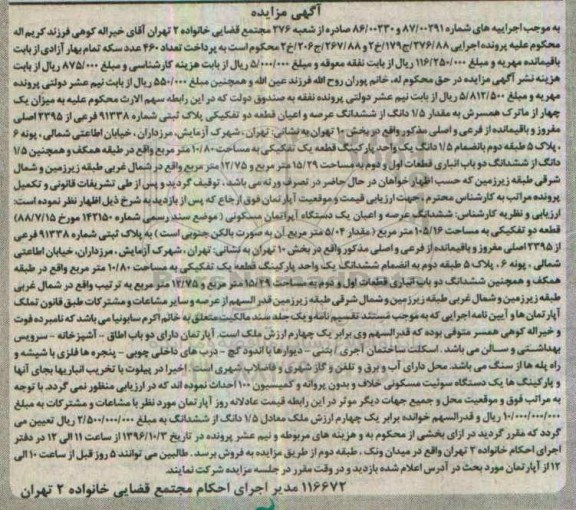 آگهی مزایده
به موجب اجراییه های شماره ۸۷/۰۰۲۹۱ و ۸۶/۰۰۲۳۰ صادره از شعبه ۲۷۶ مجتمع قضایی خانواده ۲ تهران آقای خیراله کوهی فرزند کریم اله
محکوم علیه پرونده اجرایی ۲۷۶/۸۸/ج۱۷۹/خ۲ و ۲۶۷/۸۸/ج۲۰۶/خ۲ محکوم است به پرداخت تعداد ۴۶۰ عدد سکه تمام بهار آزادی از بابت
باقیمانده مهریه و مبلغ ۱۱۶/۲۵۰/۰۰۰ ریال از بابت نفقه معوقه و مبلغ ۵/۰۰۰/۰۰۰ ریال از بابت هزینه کارشناسی و مبلغ ۸۷۵/۰۰۰ ریال از بابت
هزینه نشر آگهی مزایده در حق محکوم له، خانم پوران روح الله فرزند عین الله و همچنین مبلغ ۵۵۰/۰۰۰ ریال از بابت نیم عشر دولتی پرونده
مهریه و مبلغ ۵/۸۱۲/۵۰۰ ریال از بابت نیم عشر دولتی پرونده نفقه به صندوق دولت که در این رابطه سهم الارث محکوم علیه به میزان یک
چهار از ماترک همسرش به مقدار ۱/۵ دانگ از ششدانگ عرصه و اعیان قطعه دو تفکیکی پلاک ثبتی شماره ۹۱۳۳۸ فرعی از ۲۳۹۵ اصلی
مفروز و باقیمانده از فرعی و اصلی مذکور واقع در بخش ۱۰ تهران به نشانی: تهران، شهرک آزمایش، مرزداران، خیابان اطاعتی شمالی، پونه ۶
، پلاک ۵ طبقه دوم بانضمام ۱/۵ دانگ یک واحد پارکینگ قطعه یک تفکیکی به مساحت ۱۰/۸۰ متر مربع واقع در طبقه همکف و همچنین ۱/۵
دانگ از ششدانگ دو باب انباری قطعات اول و دوم به مساحت ۱۵/۲۹ متر مربع و ۱۲/۷۵ متر مربع واقع در شمال غربی طبقه زیرزمین و شمال
شرقی طبقه زیرزمین که حسب اظهار خواهان در حال حاضر در تصرف ورثه می باشد، توقیف گردید و پس از طی تشریفات قانونی و تکمیل
پرونده مراتب به کارشناس محترم، جهت ارزیابی قیمت و موقعیت آپارتمان فوق ارجاع که پس از بازدید به شرح ذیل اظهار نظر نموده است:
ارزیابی و نظریه کارشناس: ششدانگ عرصه و اعیان یک دستگاه آپراتمان مسکونی (موضع سند رسمی شماره ۱۴۲۱۵۰ مورخ ۸۸/۷/۱۵)
قطعه دو تفکیکی به مساحت ۱۰۵/۱۶ متر مربع (مقدار ۵/۰۴ متر مربع آن به صورت بالکن جنوبی است) به پلاک ثبتی شماره ۹۱۳۳۸ فرعی
از ۲۳۹۵ اصلی مفروز و باقیمانده از فرعی و اصلی مذکور واقع در بخش ۱۰ تهران به نشانی: تهران، شهرک آزمایش، مرزداران، خیابان اطاعتی
شمالی، پونه ۶، پلاک ۵ طبقه دوم به انضمام ششدانگ یک واحد پارکینگ قطعه یک تفکیکی به مساحت ۱۰/۸۰ متر مربع واقع در طبقه
همکف و همچنین ششدانگ دو باب انباری قطعات اول و دوم به مساحت ۱۵/۲۹ متر مربع و ۱۲/۷۵ متر مربع به ترتیب واقع در شمال غربی
طبقه زیرزمین و شمال غربی طبقه زیرزمین و شمال شرقی طبقه زیرزمین قدر السهم از عرصه و سایر مشاعات و مشترکات طبق قانون تملک
آپارتمان ها و آیین نامه اجرایی که به موجب مستند تقسیم نامه و یک جلد سند مالکیت متعلق به خانم اکرم سابونیا می باشد که نامبرده فوت
و خیراله کوهی همسر متوفی بوده که قدرالسهم وی برابر یک چهارم ارزش ملک است. آپارتمان دارای دو باب اطاق - آشپزخانه - سرویس
بهداشتی و سالن می باشد. اسکلت ساختمان آجری / بتنی - دیوارها با اندود گچ - درب های داخلی چوبی - پنجره ها فلزی با شیشه و
راه پله ها از سنگ می باشد. محل دارای آب و برق و تلفن و گاز شهری و فاضلاب شهری است. اخیرا در پیلوت با تخریب انباریها بجای آنها
و پارکینگ ها یک دستگاه سوئیت مسکونی خلاف و بدون پروانه و کمیسیون ۱۰۰ احداث نموده اند که در ارزیابی منظور نمی گردد. با توجه
به مراتب فوق و موقعیت محل و جمیع جهات دیگر موثر در این رابطه قیمت عادلانه روز آپارتمان مورد نظر با مشاعات و مشترکات به مبلغ
۱۰/۰۰۰/۰۰۰/۰۰۰ ریال و قدرالسهم خوانده برابر یک چهارم ارزش ملک معادل ۱/۵ دانگ از ششدانگ به مبلغ ۲/۵۰۰/۰۰۰/۰۰۰ ریال تعیین می
گردد که مقرر گردید در ازای بخشی از محکوم به و هزینه های مربوطه و نیم عشر پرونده در تاریخ ۱۳۹۶/۱۰/۳ از ساعت ۱۱ الی ۱۲ در دفتر
اجرای احکام خانواده ۲ تهران واقع در میدان ونک، طبقه دوم از طریق مزایده به فروش برسد. طالبین می توانند ۵ روز قبل از ساعت ۱۰ الی
۱۲ از آپارتمان مورد بحث در آدرس اعلام شده بازدید و در وقت مقرر در جلسه مزایده شرکت نمایند.
۱۱۶۶۷۲ مدیر اجرای احکام مجتمع قضایی خانواده ۲ تهران